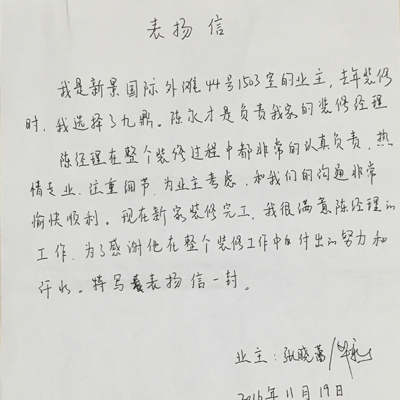 表扬信
我是新景国际外滩44号1503室的业主,去年装修
时,我选择了九鼎。陈永才是负责我家的装修经理
陈经理在整个装修过程中都非常的认真负责,热
情专业、注重细节、为业主考虑,和我们的沟通非常
愉快顺利。现在新家装修完工,我很满意陈经理的
工作,为了感谢他在整个装修工作中付出的努力和
汗水。特写表扬信一封。
业主:张晓蕾/
2016年11月19日